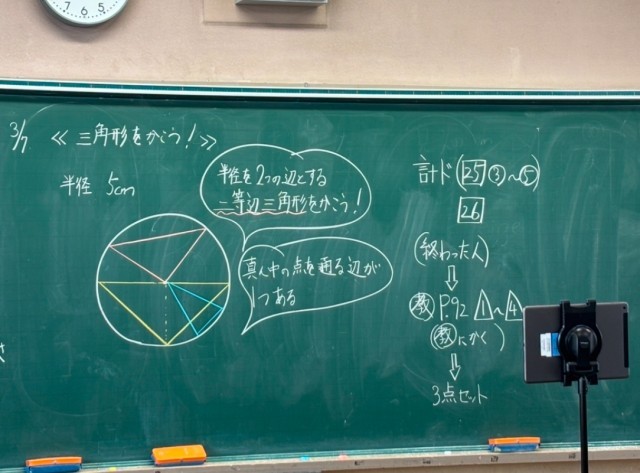 3/7 《三角形をかこう!》
半径 5cm
半径を2つの辺とする
二等辺三角形をかこう!
真ん中の点を通る辺が
1つある
計ド(25③~⑤)
26
(終わった人)
⇓
教 P.92 1~4
(教にかく)
⇓
3点セット
7 6 5